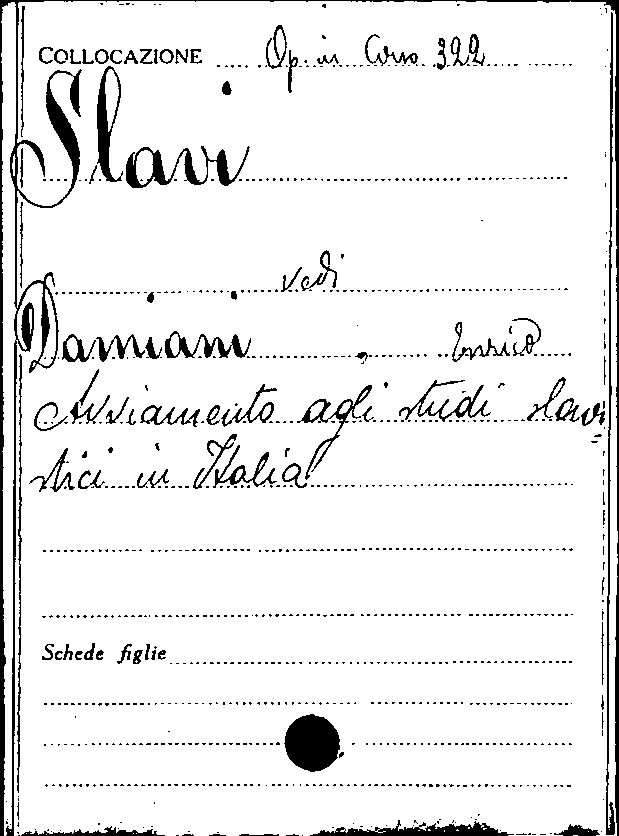 COLLOCAZIONE Op. in Corso 322
Slavi
vedi
Damiani, Enrico
Avviamento agli studi slavi=
stici in Italia
Schede figlie